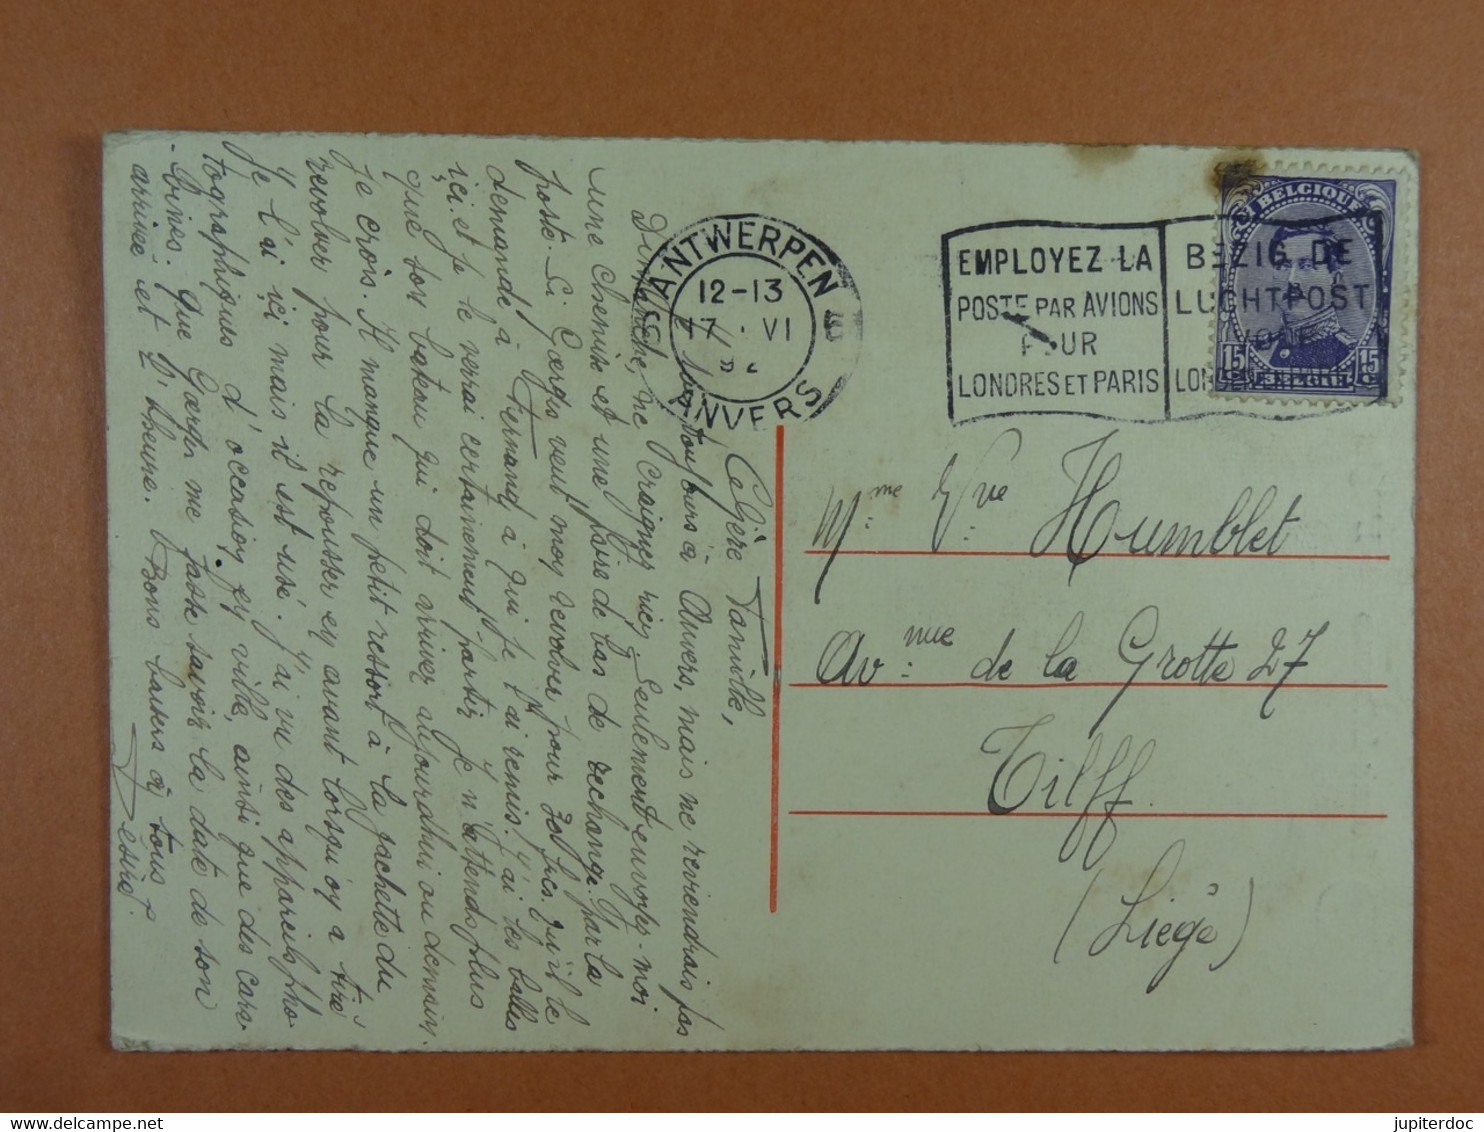 ANTWERPEN
12-13
17 VI
ANVERS
EMPLOYEZ LA
POSTE PAR AVIONS
POUR
LONDRES ET PARIS
BEZIG DE
LUCHTPOST
VOOR
BELGIQUE
15 15
Mme Vve Humblet
Avnue de la Grotte 27
Tilff
(Liége)
Chère Famille,
Je suis toujours à Anvers, mais ne reviendrais pas
Dimanche, ne craignez rien, seulement envoyer-moi
une chemise et une paire de bas de rechange par la
poste. Si Gaston veut mon revolver pour 30 frcs. qu'il le
demande à Fernand à qui je l'ai remis. J'ai les balles
içi et je le verrai certainement partir. Je n'attends plus
que son bateau qui doit arriver aujourdhui ou demain,
je crois. Il manque un petit ressort à la gachette du
revolver pour la repousser en avant lorsqu'on a tiré
Je l'ai içi mais il est usé. J'ai vu des appareils pho-
tographiques d'occasion en ville, ainsi que des cara-
-bines. que Gaston me fasse savoir la date de son
arrivée et l'heure. Bons baisers à tous
Désiré.
www.delcampe.net
jupiterdoc